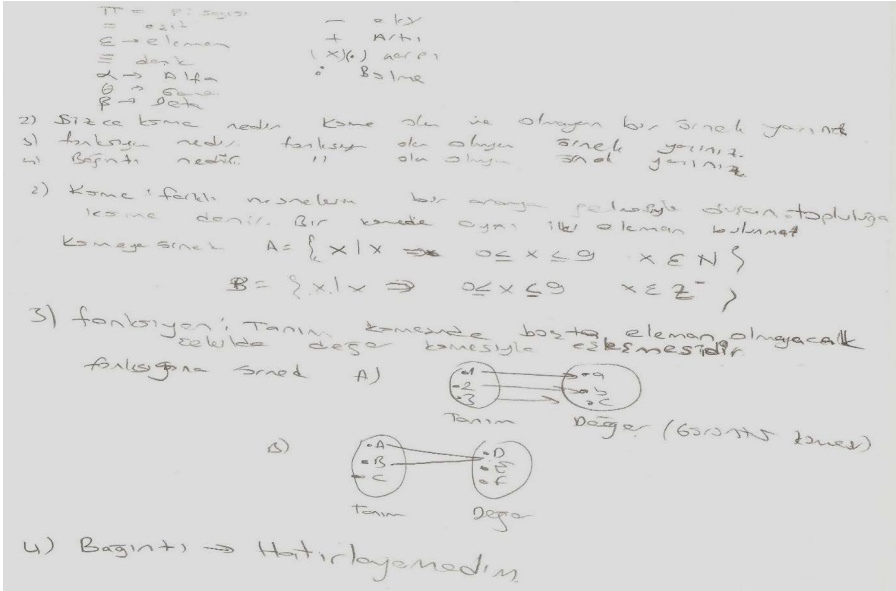 π = Pi sayısı
= eşit
ε → eleman
≡ denk
α → Alfa
θ →
β → Beta
- eksi
+ Artı
(x)(.) çarpı
÷ Bölme
2) Sizce küme nedir küme olan ve olmayan bir örnek yazınız
3) fonksiyon nedir fonksiyon olan olmayan örnek yazınız.
4) Bağıntı nedir. " olan olmayan örnek yazınız.
2) Küme: farklı nesnelerin bir araya gelmesiyle oluşan topluluğa
küme denir. Bir kümede aynı iki eleman bulunmaz
Kümeye örnek A = { x | x ⇒ 0 ≤ x ≤ 9 x ε N }
B = { x | x ⇒ 0 ≤ x ≤ 9 x ε Z⁻ }
3) fonksiyon: Tanım kümesinde boşta eleman olmayacak
şekilde değer kümesiyle eşleşmesidir
fonksiyona örnek A)
1 2 3
a b c
Tanım Değer (Görüntü kümesi)
B)
A B C
D E F
Tanım Değer
4) Bağıntı → Hatırlayamadım